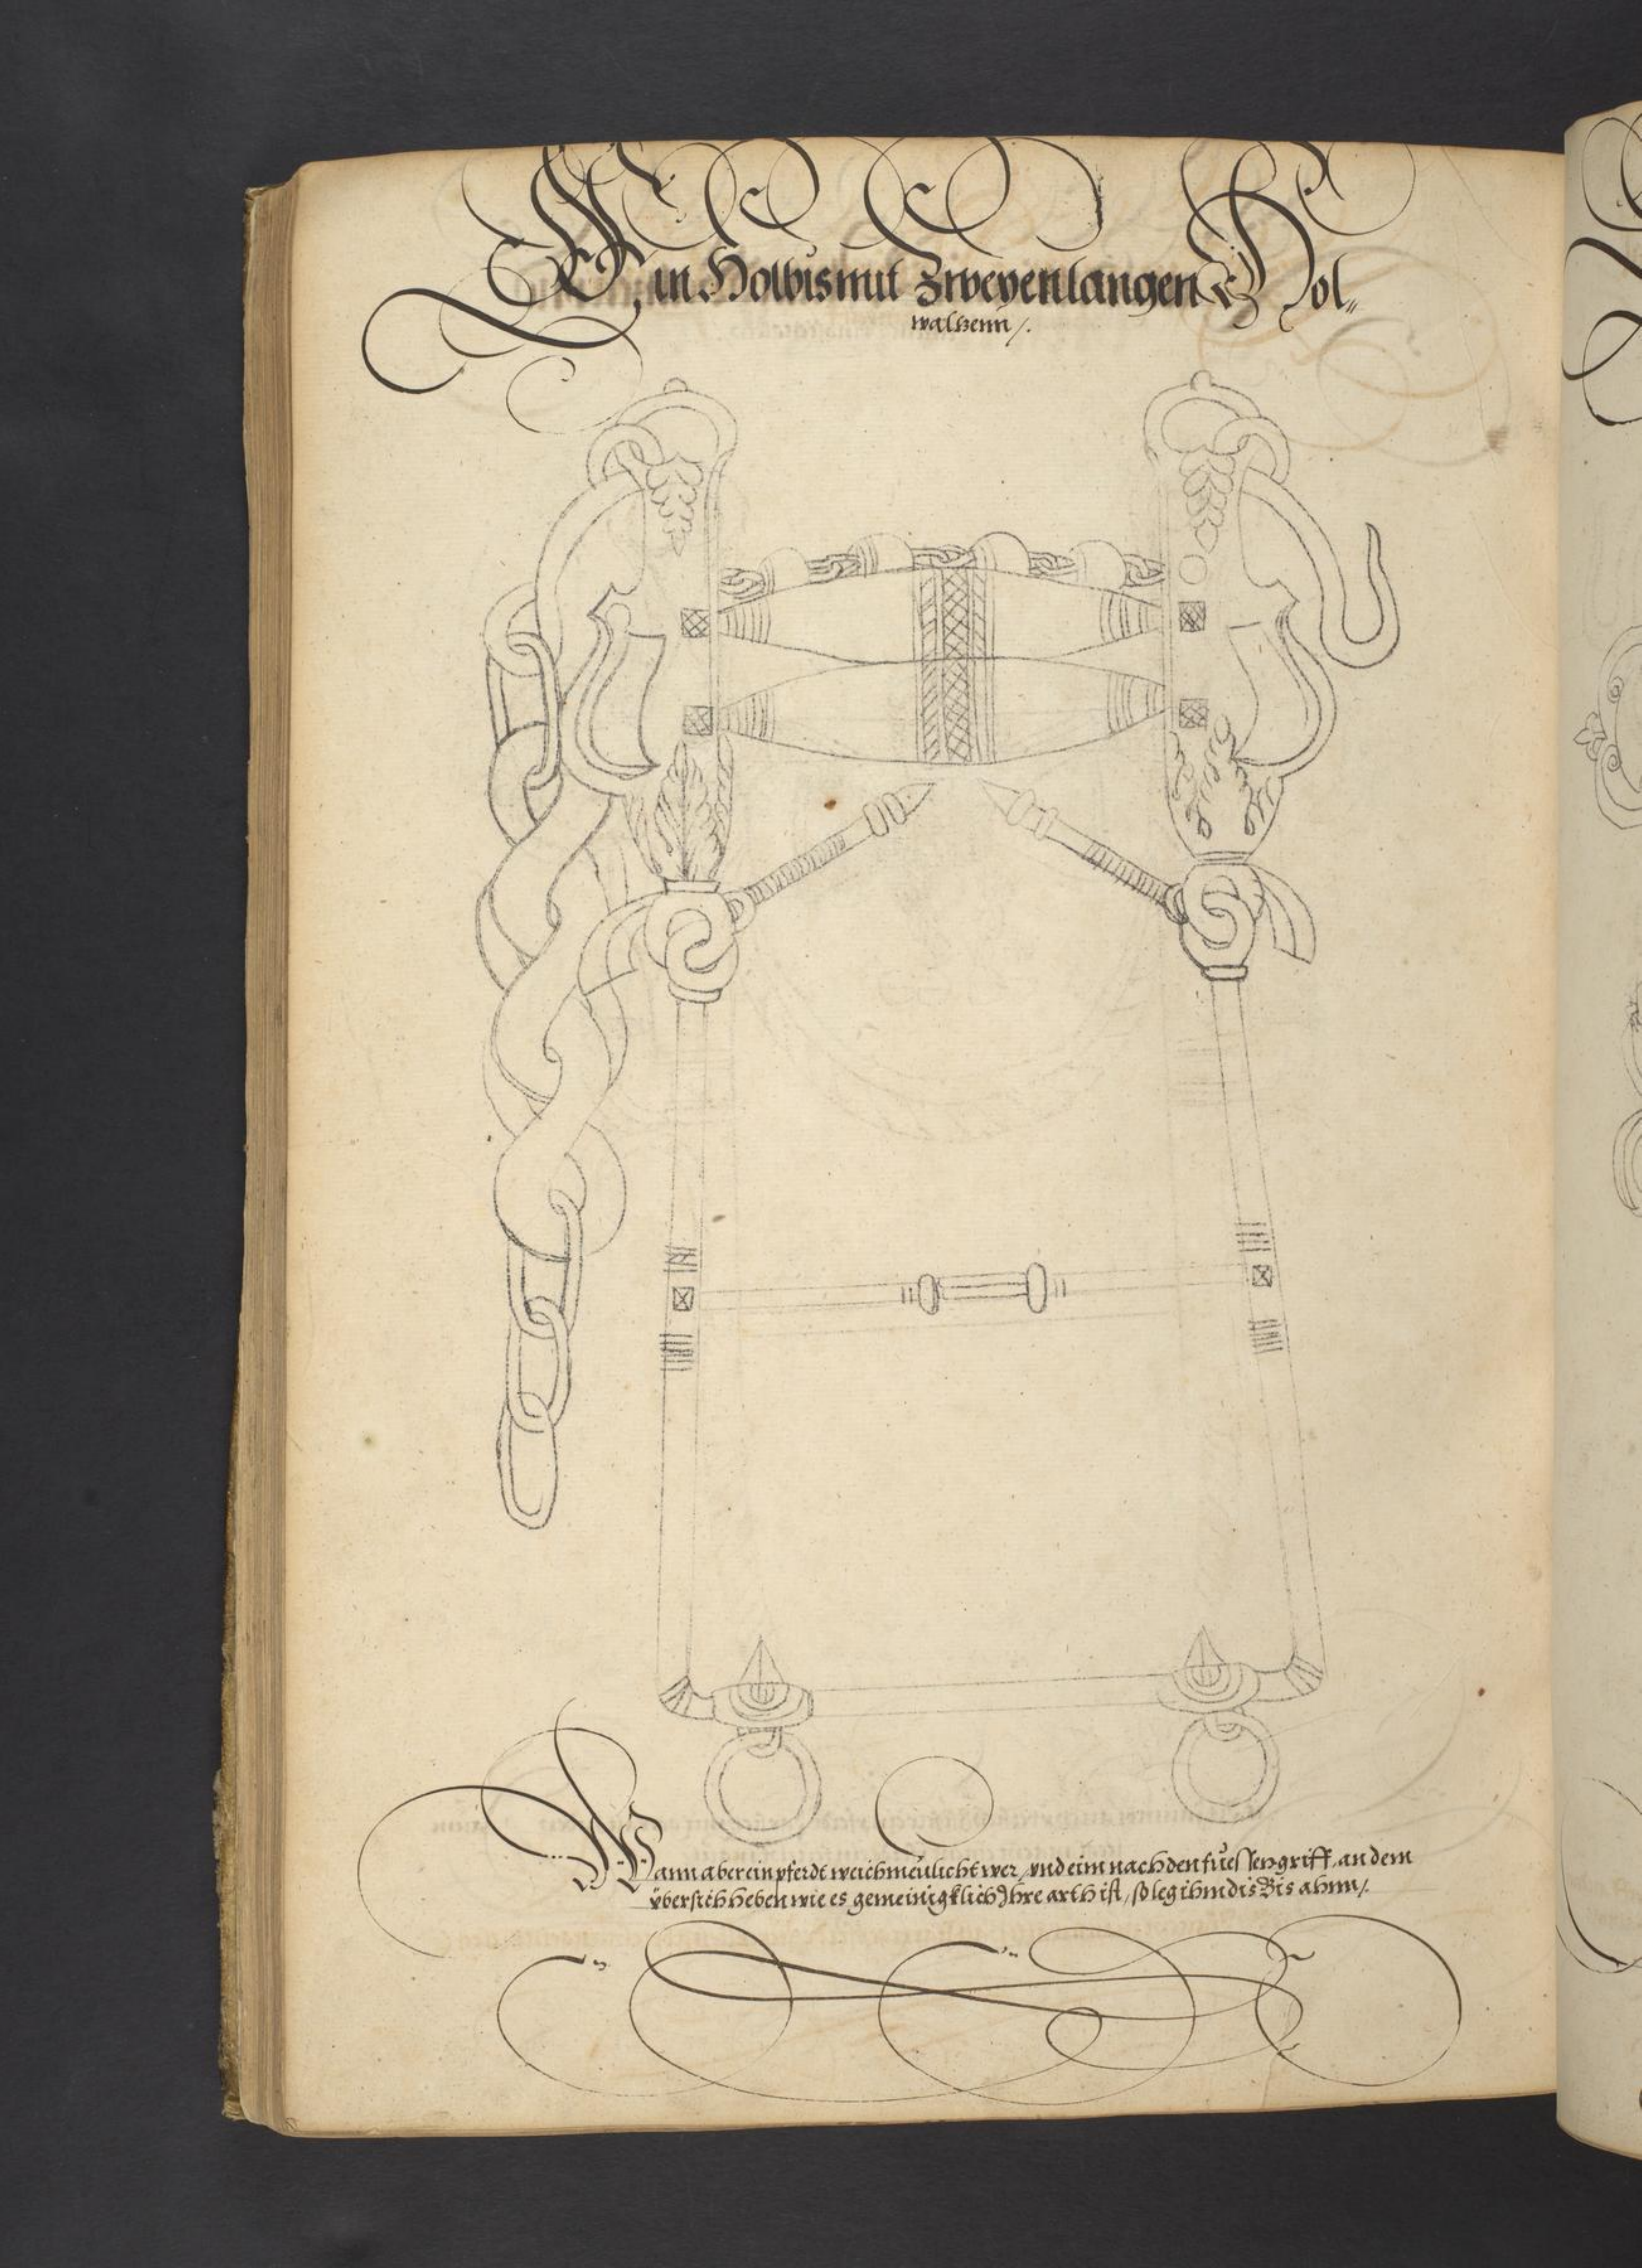 Ein Holbis mit Zweyen langen Hol„
walzenn /.
Wann aber ein pferdt weichmeülicht wer / vnd eim nach den füessen griff, an dem
übersich heben wie es gemeinigklich Ihre arth ist / so leg ihm dis Bis ahnn /.